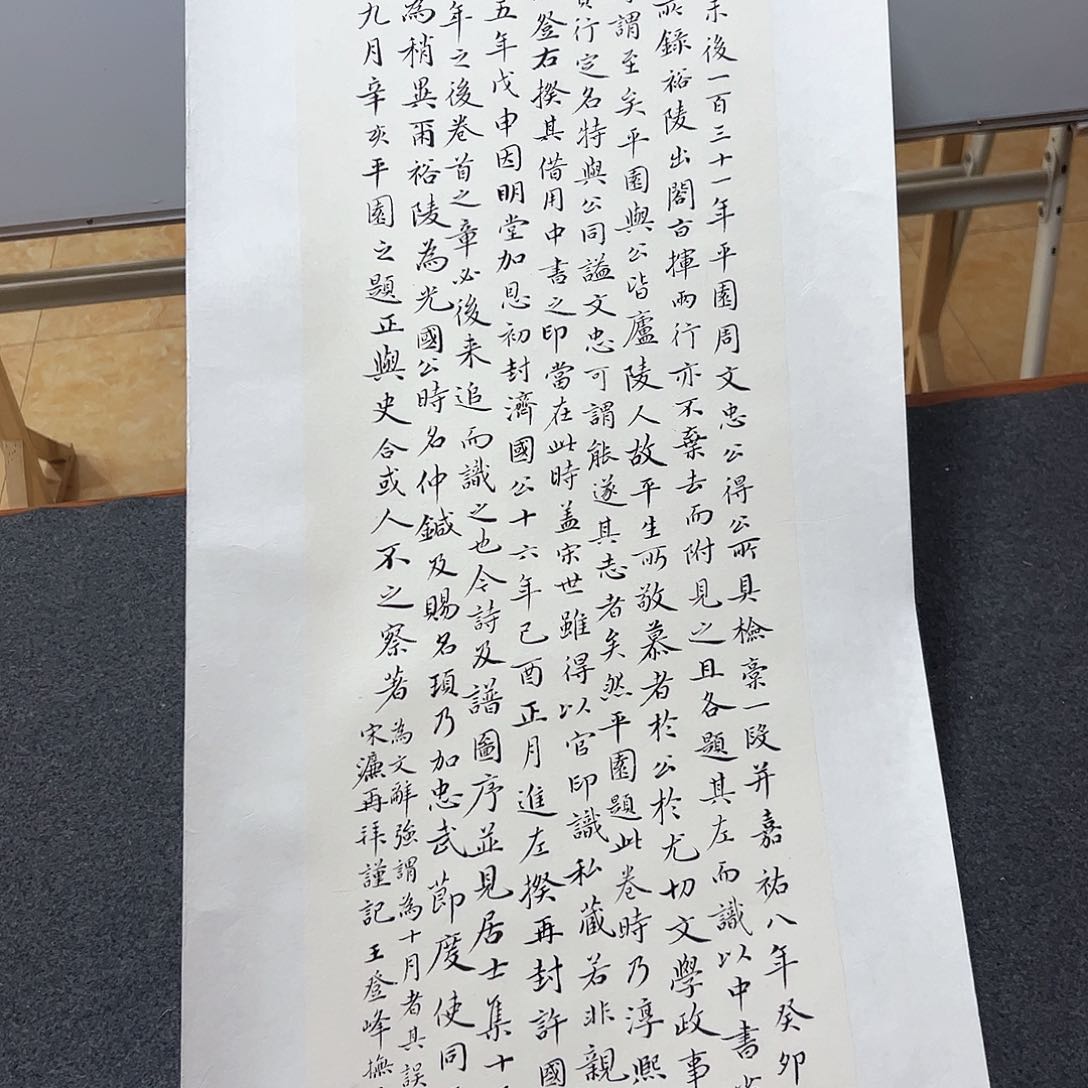 未後一百三十一年平園周文忠公得公所具檢稾一段并嘉祐八年癸卯
所錄裕陵出閣百揮兩行亦不棄去而附見之且各題其左而識以中書
謂至矣平園與公皆廬陵人故平生所敬慕者於公於尤切文學政事
行定名特與公同謚文忠可謂能遂其志者矣然平園題此卷時乃淳熙
登右揆其借用中書之印當在此時盖宋世雖得以官印識私蔵若非親
五年戊申因明堂加恩初封濟國公十六年己酉正月進左揆再封許國
年之後卷首之章必後来追而識之也今詩及譜圖序並見居士集十
為稍異爾裕陵為光國公時名仲鍼及賜名頊乃加忠武節度使同
九月辛亥平園之題正與史合或人不之察著
為文辭強謂為十月者其誤
宋濂再拜謹記 王登峰撫